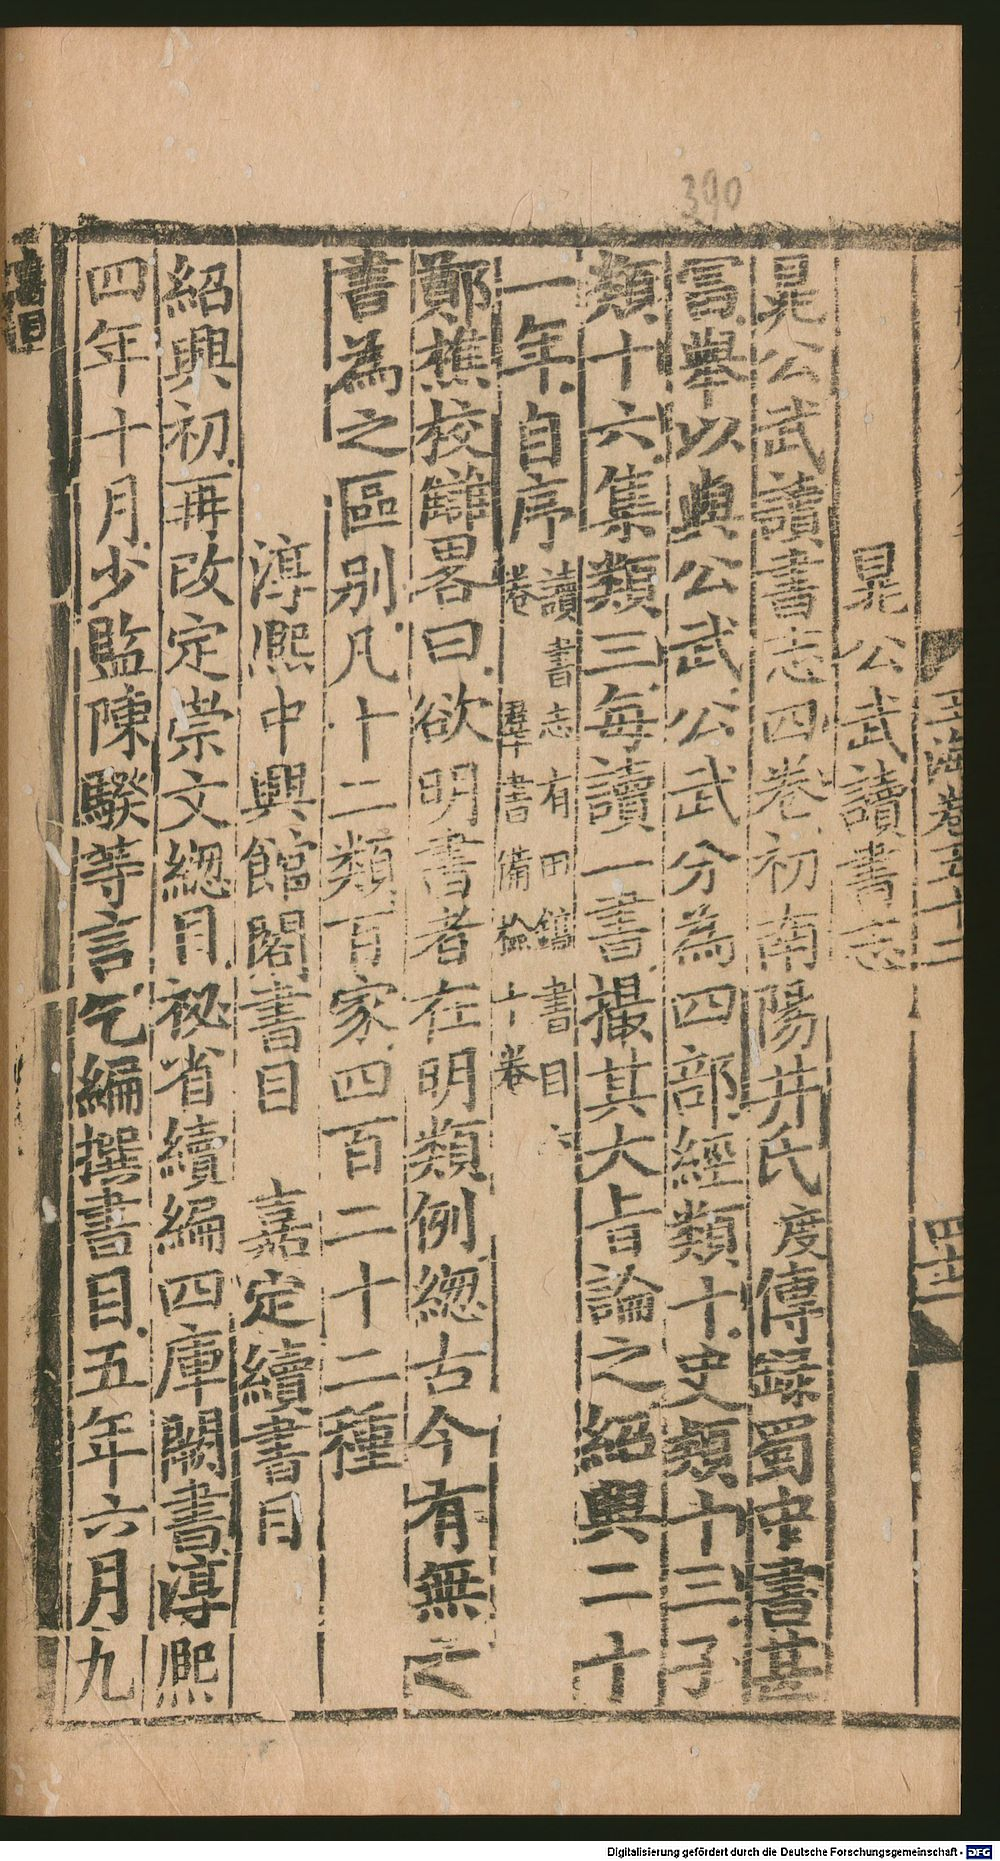 390
玉海卷五十二
晁公武讀書志
晁公武讀書志四卷初南陽井氏度傳録蜀中書甚
冨舉以與公武公武分為四部經類十史類十三子
類十六集類三每讀一書撮其大旨論之紹興二十
一年自序讀書志有田鎬書目六
卷羣書備檢十卷
鄭樵校讎畧曰欲明書者在明類例緫古今有無之
書為之區别凡十二類百家四百二十二種
淳熈中興館閣書目 嘉定續書目
紹興初再改定崇文緫目祕省續編四庫闕書淳熈
四年十月少監陳騤等言乞編撰書目五年六月九
Digitalisierung gefördert durch die Deutsche Forschungsgemeinschaft - DFG